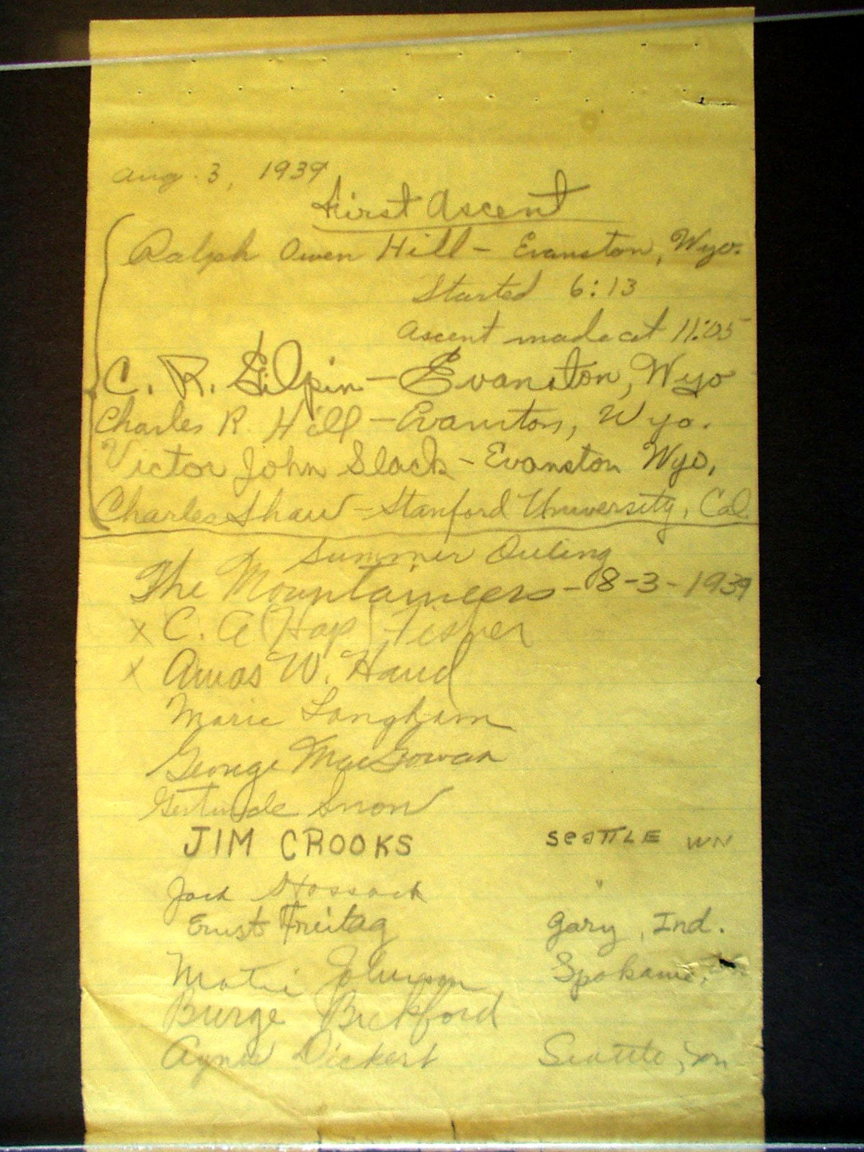 Aug. 3, 1939
First Ascent
Ralph Owen Hill - Evanston, Wyo.
Started 6:13
Ascent made at 11:05
C. R. Gilpin - Evanston, Wyo
Charles R. Hill - Evanston, Wyo.
Victor John Slack - Evanston Wyo,
Charles Shaw - Stanford University, Cal.
Summer Outing
The Mountaineers - 8-3-1939
x C. A (Hap) Fisher
x Amos W. Hand
Marie Langham
George MacGowan
Gertrude Snow
JIM CROOKS SEATTLE WN
Jack Hossack "
Ernst Freitag Gary, Ind.
Johnson Spokane,
Burge Bickford
Agnes Dickert Seattle, Wn